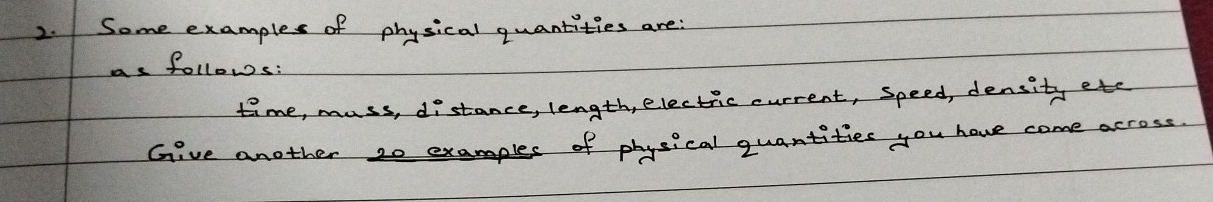 2. Some examples of physical quantities are:
as follows:
time, mass, distance, length, electric current, speed, density etc
Give another 20 examples of physical quantities you have come across.